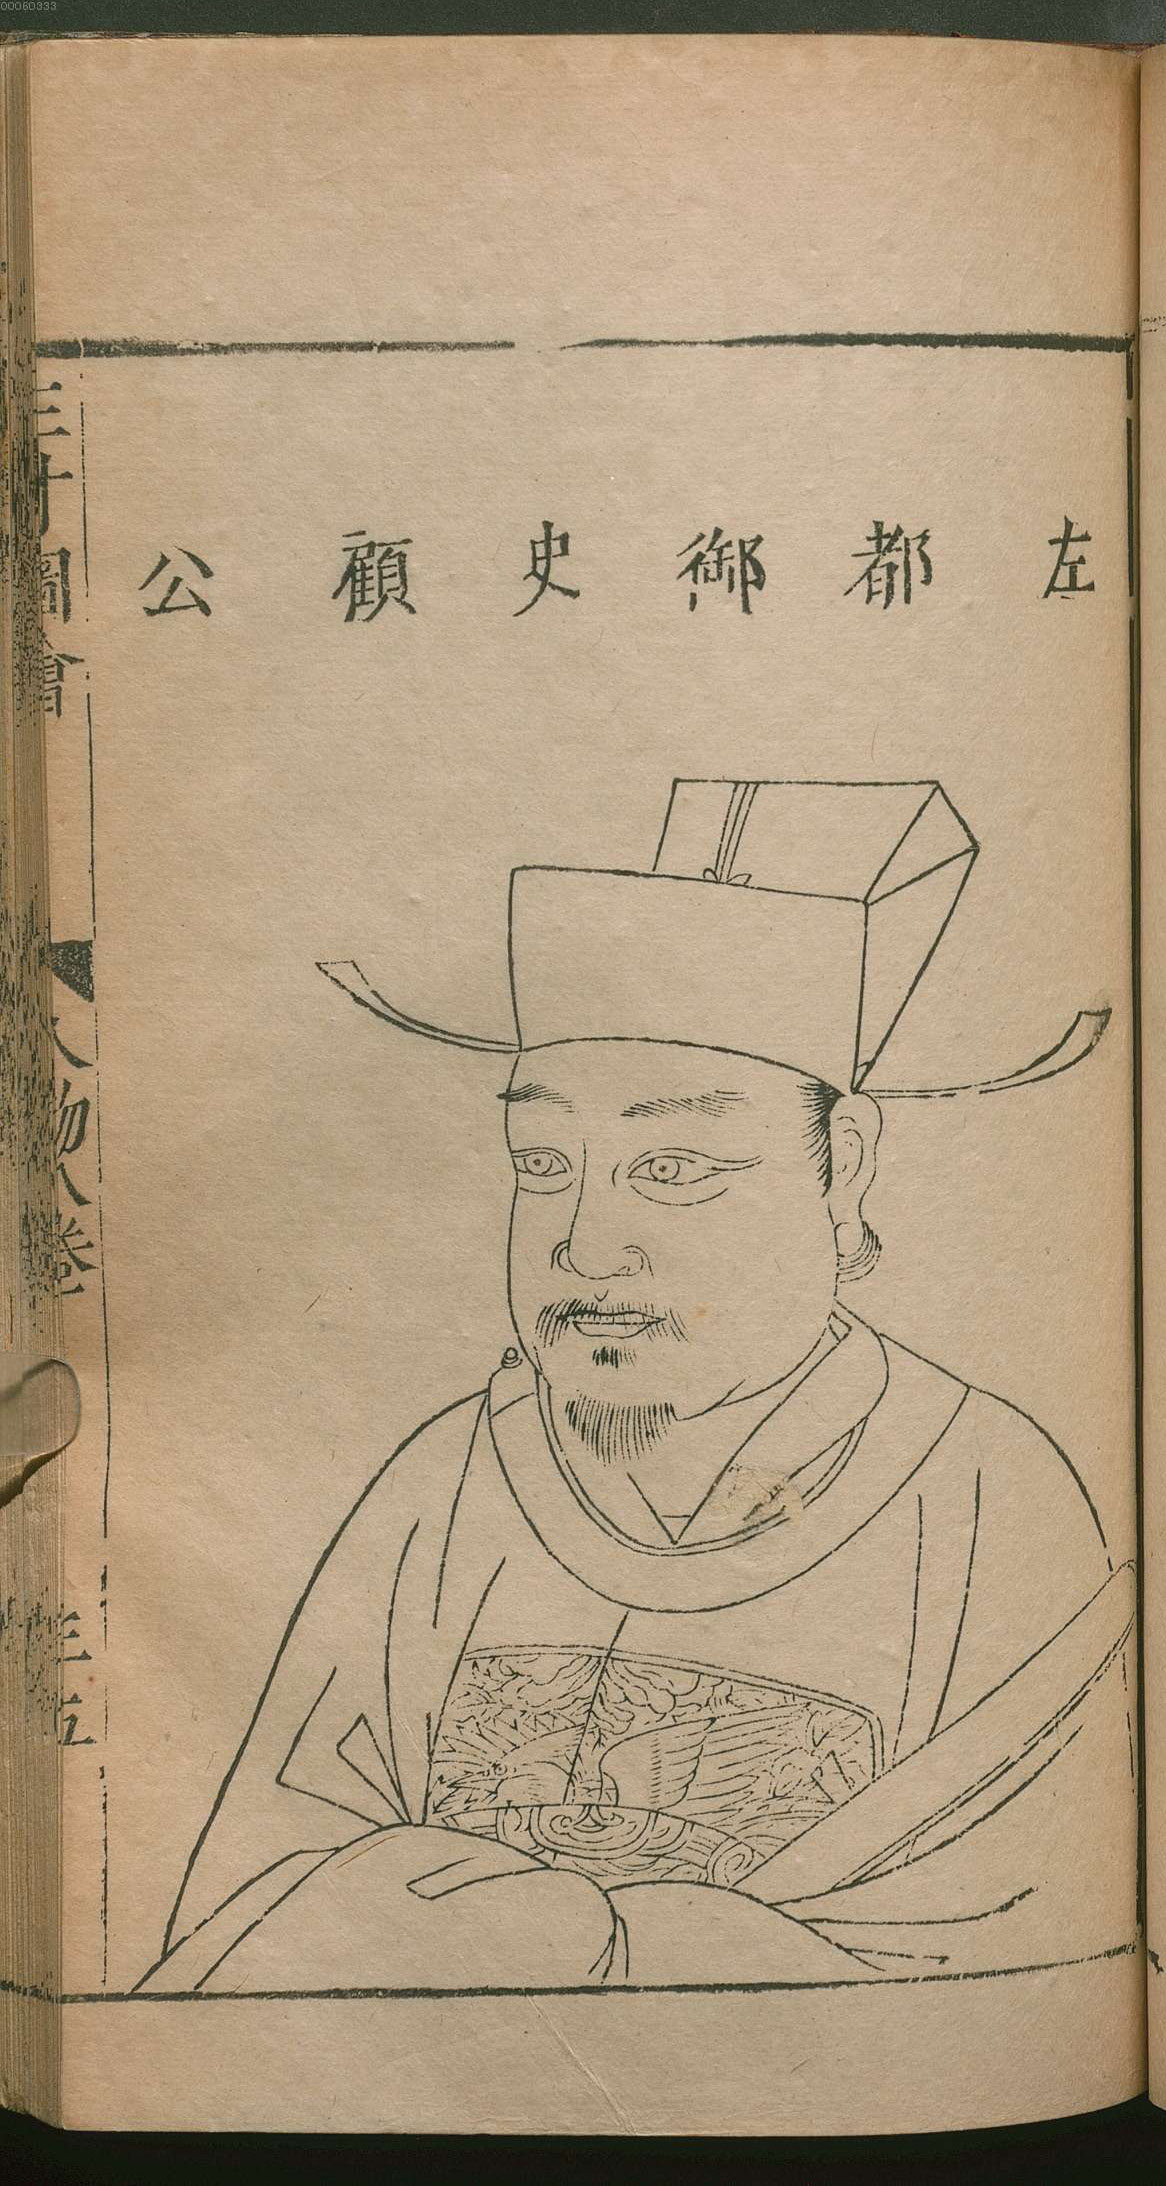 00060333
左都御史顧公
三才圖會
人物八卷
三五